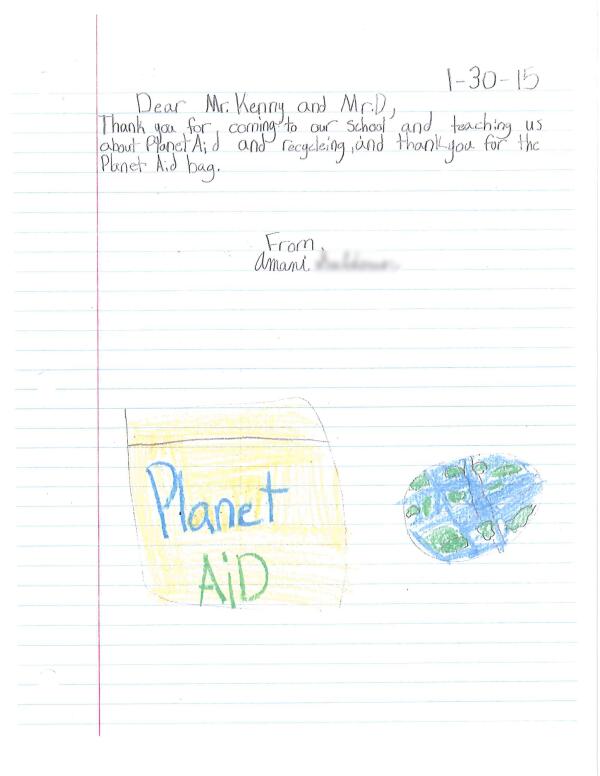 1-30-15
Dear Mr. Kenny and Mr.D,
Thank you for coming to our school and teaching us
about Planet Aid and recycleing, and thank you for the
Planet Aid bag.
From,
Amani
Planet
AiD